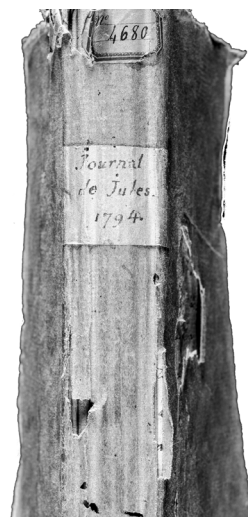 N°
4680
Journal
de Jules.
1794.